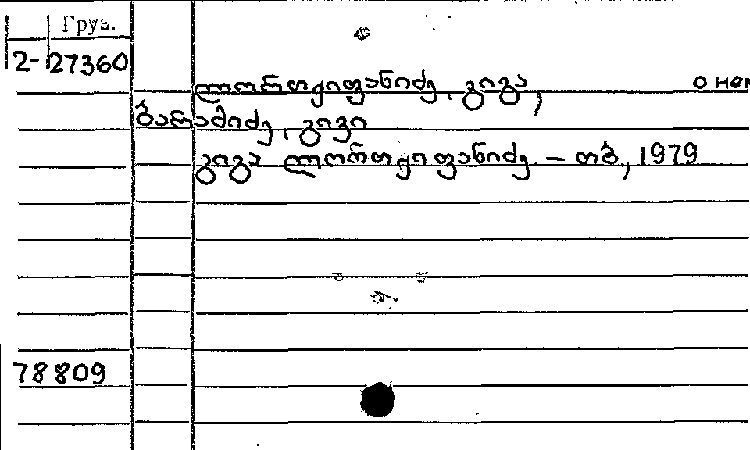 Груз.
2-27360
ლორთქიფანიძე, გიგა, о нем
ბარამიძე, გივი
გიგა ლორთქიფანიძე. — თბ., 1979
78809